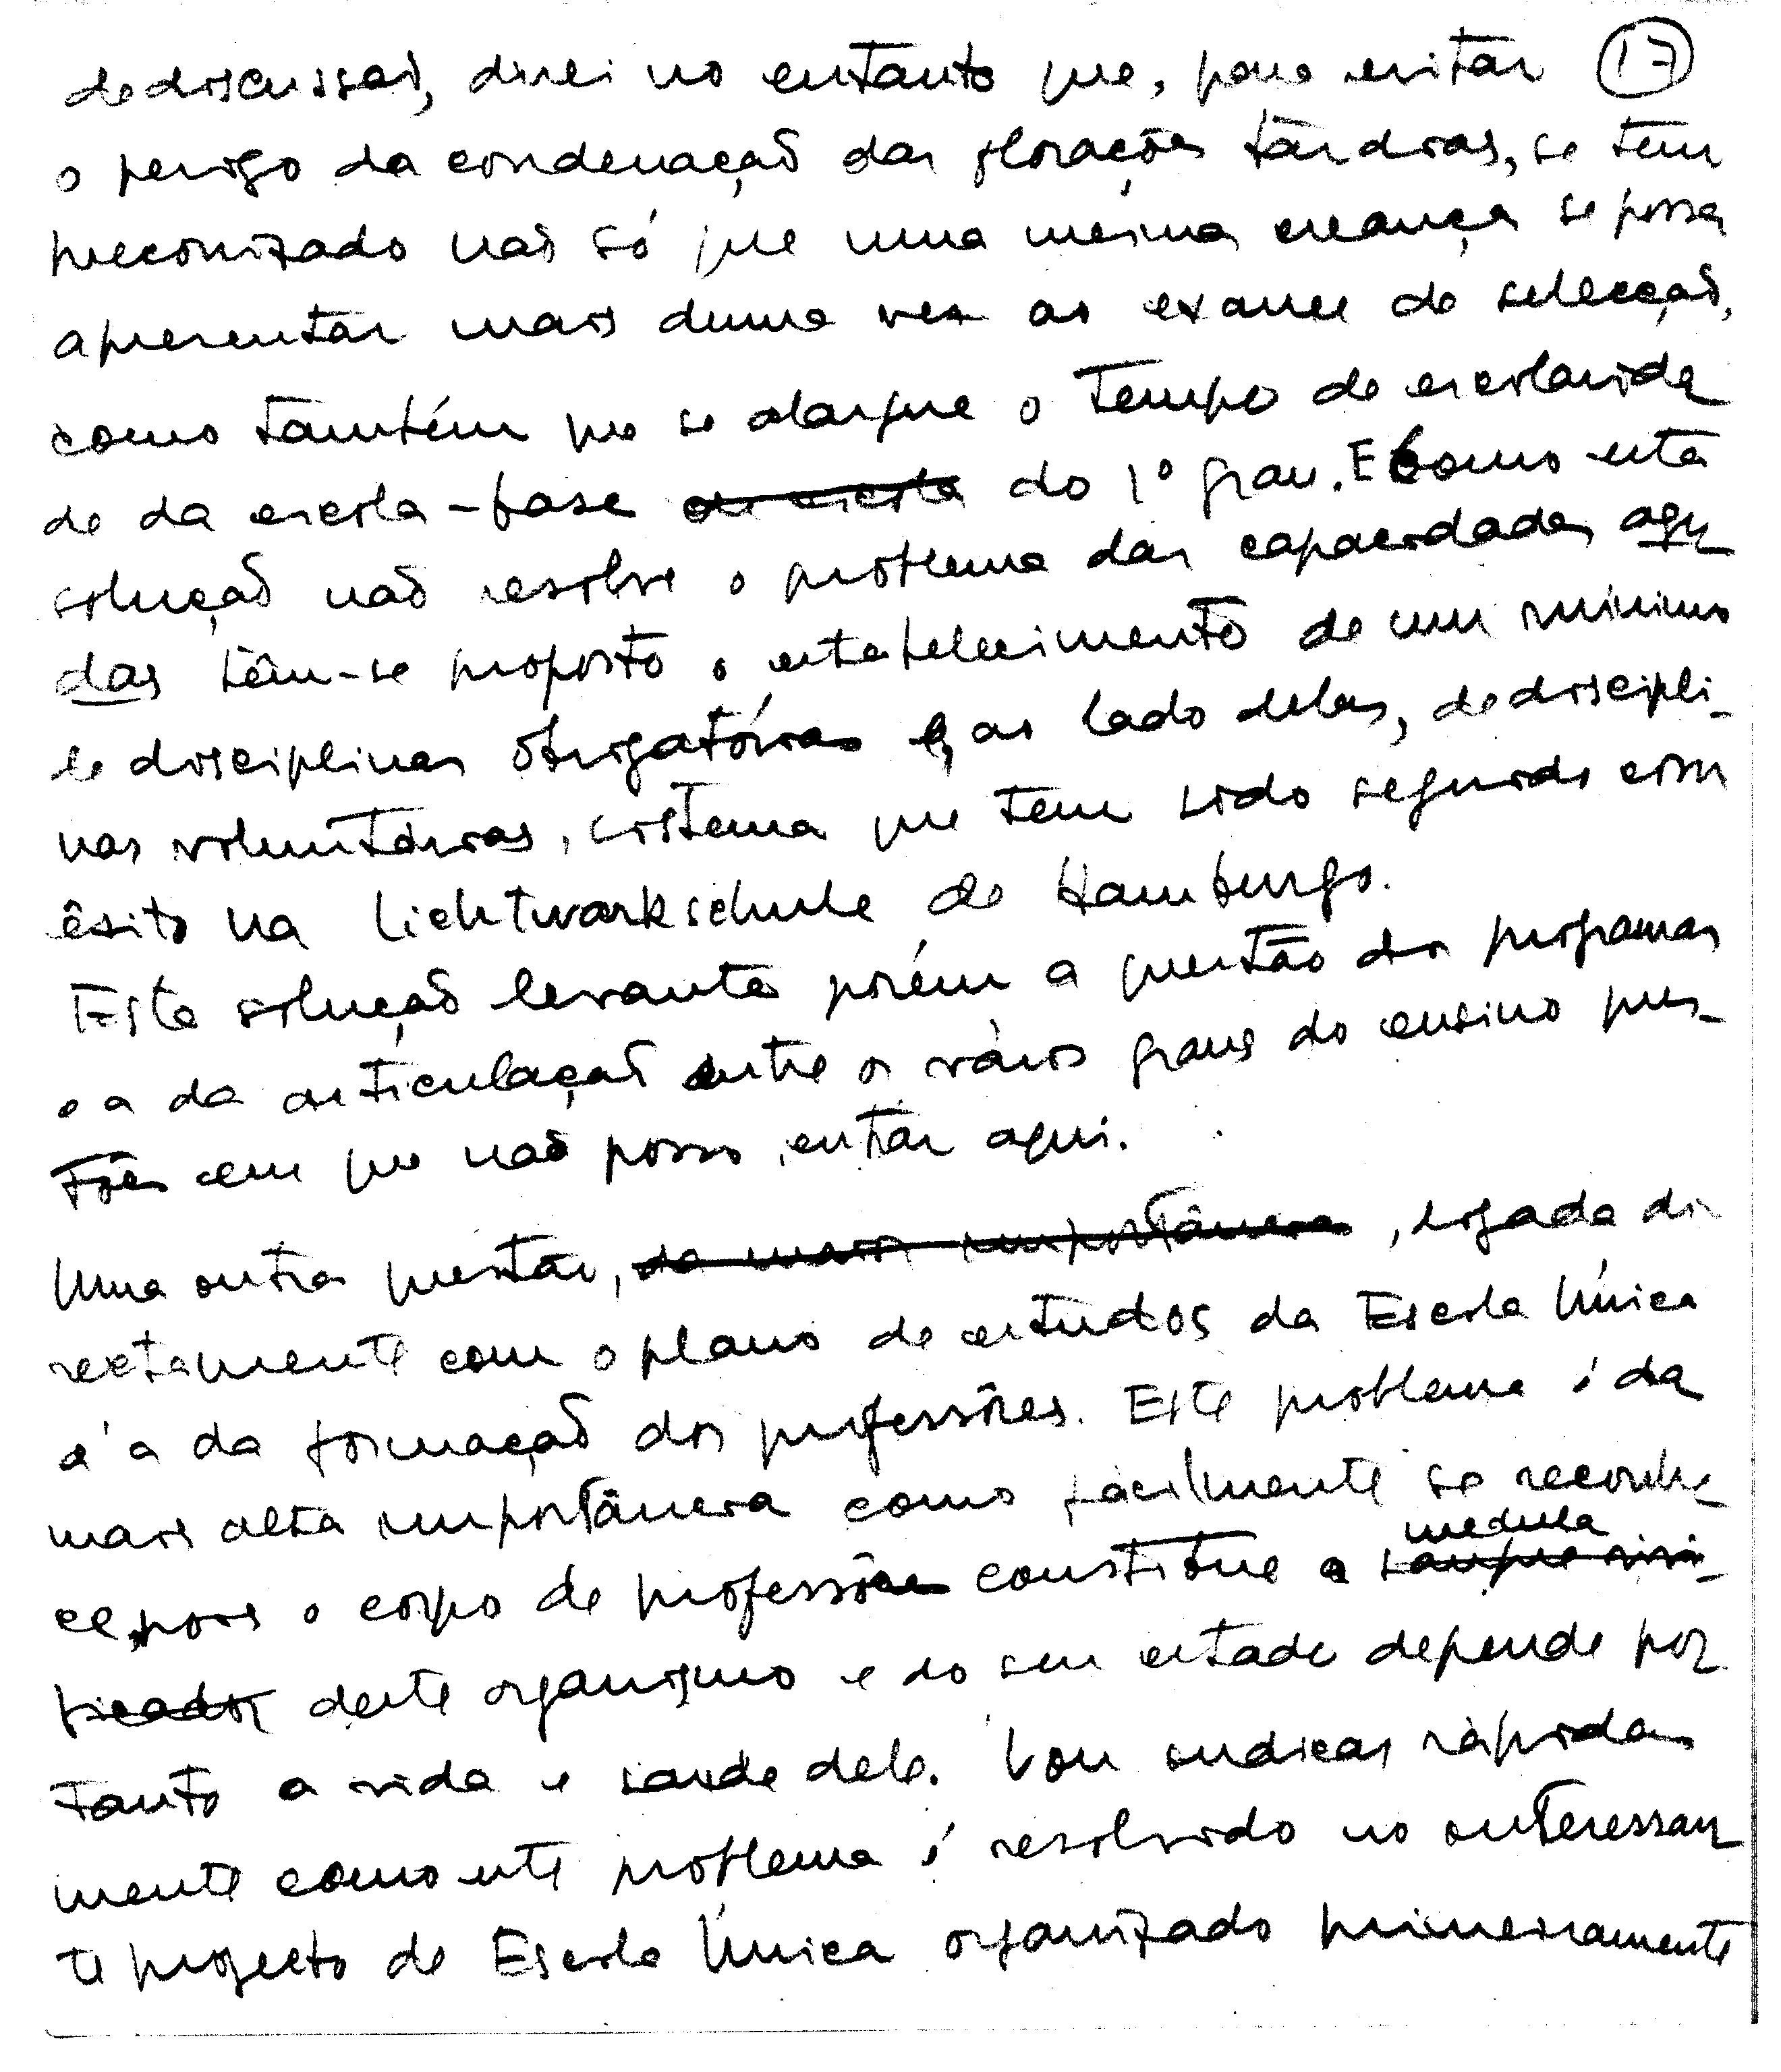 de discussão, direi no entanto que, para evitar (17)
o perigo da condenação das florações tardias, se tem
preconizado não só que uma mesma creança se possa
apresentar mais duma vez ao exame de selecção,
como também que se alargue o tempo de escolarida
de da escola-base da escola do 1º grau. E como esta
solução não resolve o problema das capacidades agu
das têm-se proposto o estabelecimento de um mínimo
de disciplinas obrigatórias e, ao lado delas, de discipli-
nas voluntárias, sistema que tem sido seguido com
êxito na Lichtwarkschule de Hamburgo.
Esta solução levanta porém a questão dos programas
e a da articulação entre os vários graus do ensino ques-
tões em que não posso entrar aqui.
Uma outra questão, da maior importância, ligada di
rectamente com o plano de estudos da Escola Única
é a da formação dos professôres. Este problema é da
mais alta importância como facilmente se reconhe-
ce, pois o corpo de professôres constitue a medula sangue vivi-
ficador deste organismo e do seu estado depende por
tanto a vida e saúde dele. Vou indicar ràpida
mente como este problema é resolvido no interessan
te projecto de Escola Única organizado primeiramente